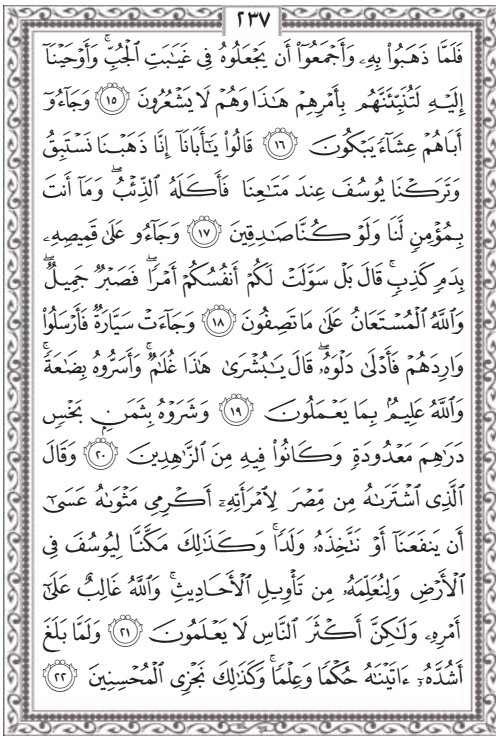 ٢٣٧
فَلَمَّا ذَهَبُوا۟ بِهِۦ وَأَجْمَعُوٓا۟ أَن يَجْعَلُوهُ فِى غَيَـٰبَتِ ٱلْجُبِّ ۚ وَأَوْحَيْنَآ
إِلَيْهِ لَتُنَبِّئَنَّهُم بِأَمْرِهِمْ هَـٰذَا وَهُمْ لَا يَشْعُرُونَ ١٥ وَجَآءُوٓ
أَبَاهُمْ عِشَآءً يَبْكُونَ ١٦ قَالُوا۟ يَـٰٓأَبَانَآ إِنَّا ذَهَبْنَا نَسْتَبِقُ
وَتَرَكْنَا يُوسُفَ عِندَ مَتَـٰعِنَا فَأَكَلَهُ ٱلذِّئْبُ ۖ وَمَآ أَنتَ
بِمُؤْمِنٍ لَّنَا وَلَوْ كُنَّا صَـٰدِقِينَ ١٧ وَجَآءُو عَلَىٰ قَمِيصِهِۦ
بِدَمٍ كَذِبٍ ۚ قَالَ بَلْ سَوَّلَتْ لَكُمْ أَنفُسُكُمْ أَمْرًا ۖ فَصَبْرٌ جَمِيلٌ ۖ
وَٱللَّهُ ٱلْمُسْتَعَانُ عَلَىٰ مَا تَصِفُونَ ١٨ وَجَآءَتْ سَيَّارَةٌ فَأَرْسَلُوا۟
وَارِدَهُمْ فَأَدْلَىٰ دَلْوَهُۥ ۖ قَالَ يَـٰبُشْرَىٰ هَـٰذَا غُلَـٰمٌ ۚ وَأَسَرُّوهُ بِضَـٰعَةً ۚ
وَٱللَّهُ عَلِيمٌۢ بِمَا يَعْمَلُونَ ١٩ وَشَرَوْهُ بِثَمَنٍۭ بَخْسٍ
دَرَٰهِمَ مَعْدُودَةٍ وَكَانُوا۟ فِيهِ مِنَ ٱلزَّٰهِدِينَ ٢٠ وَقَالَ
ٱلَّذِى ٱشْتَرَىٰهُ مِن مِّصْرَ لِٱمْرَأَتِهِۦٓ أَكْرِمِى مَثْوَىٰهُ عَسَىٰٓ
أَن يَنفَعَنَآ أَوْ نَتَّخِذَهُۥ وَلَدًا ۚ وَكَذَٰلِكَ مَكَّنَّا لِيُوسُفَ فِى
ٱلْأَرْضِ وَلِنُعَلِّمَهُۥ مِن تَأْوِيلِ ٱلْأَحَادِيثِ ۚ وَٱللَّهُ غَالِبٌ عَلَىٰٓ
أَمْرِهِۦ وَلَـٰكِنَّ أَكْثَرَ ٱلنَّاسِ لَا يَعْلَمُونَ ٢١ وَلَمَّا بَلَغَ
أَشُدَّهُۥٓ ءَاتَيْنَـٰهُ حُكْمًا وَعِلْمًا ۚ وَكَذَٰلِكَ نَجْزِى ٱلْمُحْسِنِينَ ٢٢